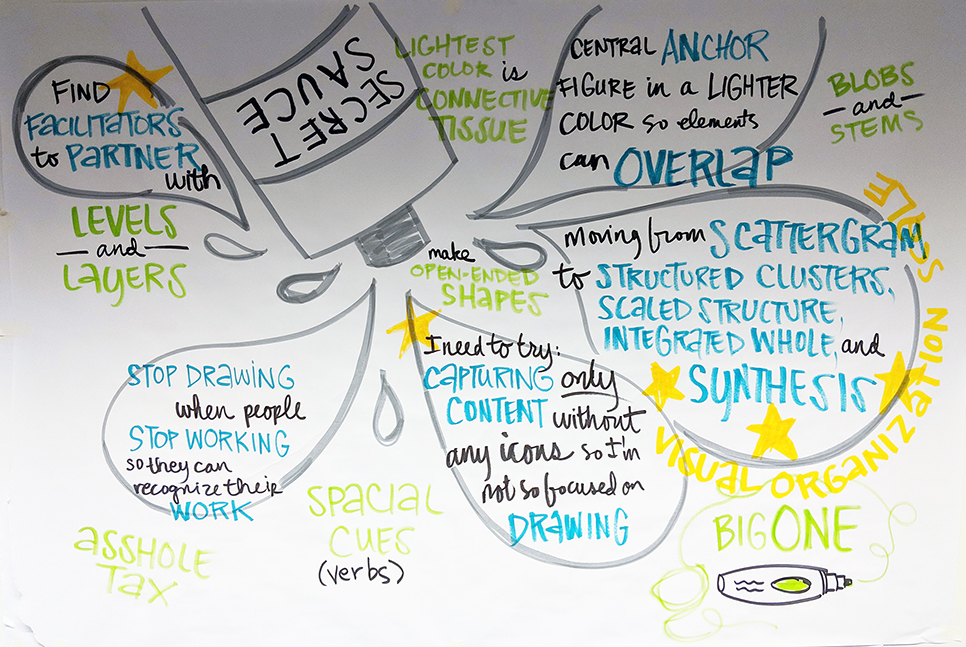 FIND
FACILITATORS
to PARTNER
with
LEVELS
— and —
LAYERS
SECRET
SAUCE
LIGHTEST
COLOR is
CONNECTIVE
TISSUE
CENTRAL ANCHOR
FIGURE in a LIGHTER
COLOR so elements
can OVERLAP
BLOBS
— and —
STEMS
make
OPEN-ENDED
SHAPES
moving from SCATTERGRAM
to STRUCTURED CLUSTERS,
SCALED STRUCTURE,
INTEGRATED WHOLE, and
SYNTHESIS
VISUAL ORGANIZATION SCALE
STOP DRAWING
when people
STOP WORKING
so they can
recognize their
WORK
I need to try:
CAPTURING only
CONTENT without
any icons so I'm
not so focused on
DRAWING
ASSHOLE
TAX
SPACIAL
CUES
(verbs)
BIG ONE